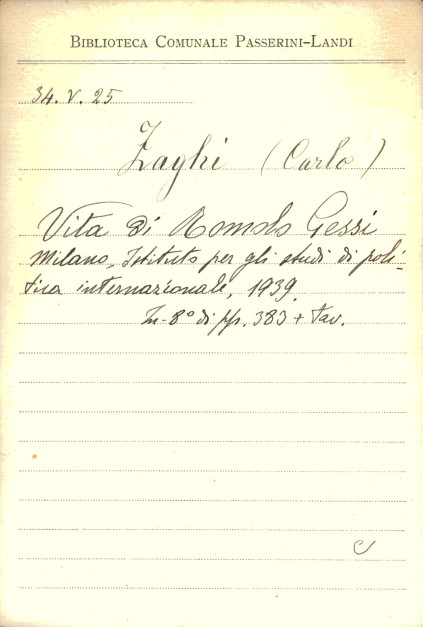 BIBLIOTECA COMUNALE PASSERINI-LANDI
34. V. 25
Zaghi (Carlo)
Vita di Romolo Gessi
Milano, Istituto per gli studi di poli-
tica internazionale, 1939.
In-8° di pp. 383 + tav.
C